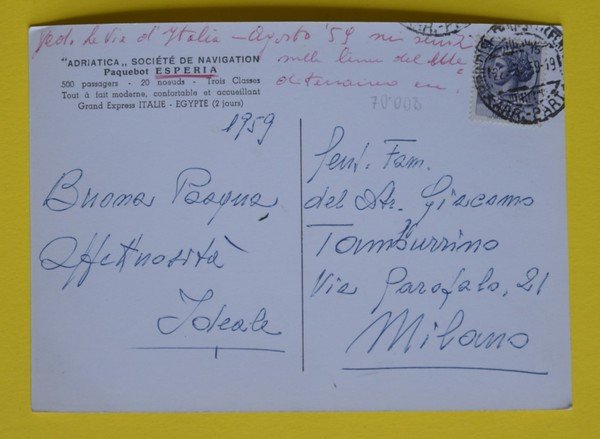 Vedi Le Vie d'Italia - Agosto '59
"ADRIATICA„ SOCIÉTÉ DE NAVIGATION
Paquebot ESPERIA
500 passagers - 20 noeuds - Trois Classes
Tout à fait moderne, confortable et accueillant
Grand Express ITALIE - EGYPTE (2 jours)
70-008
1959
Buona Pasqua
Affettuosità
Ideale
Gent. Fam.
del Dr. Giacomo
Tamburrino
Via Garofalo, 21
Milano